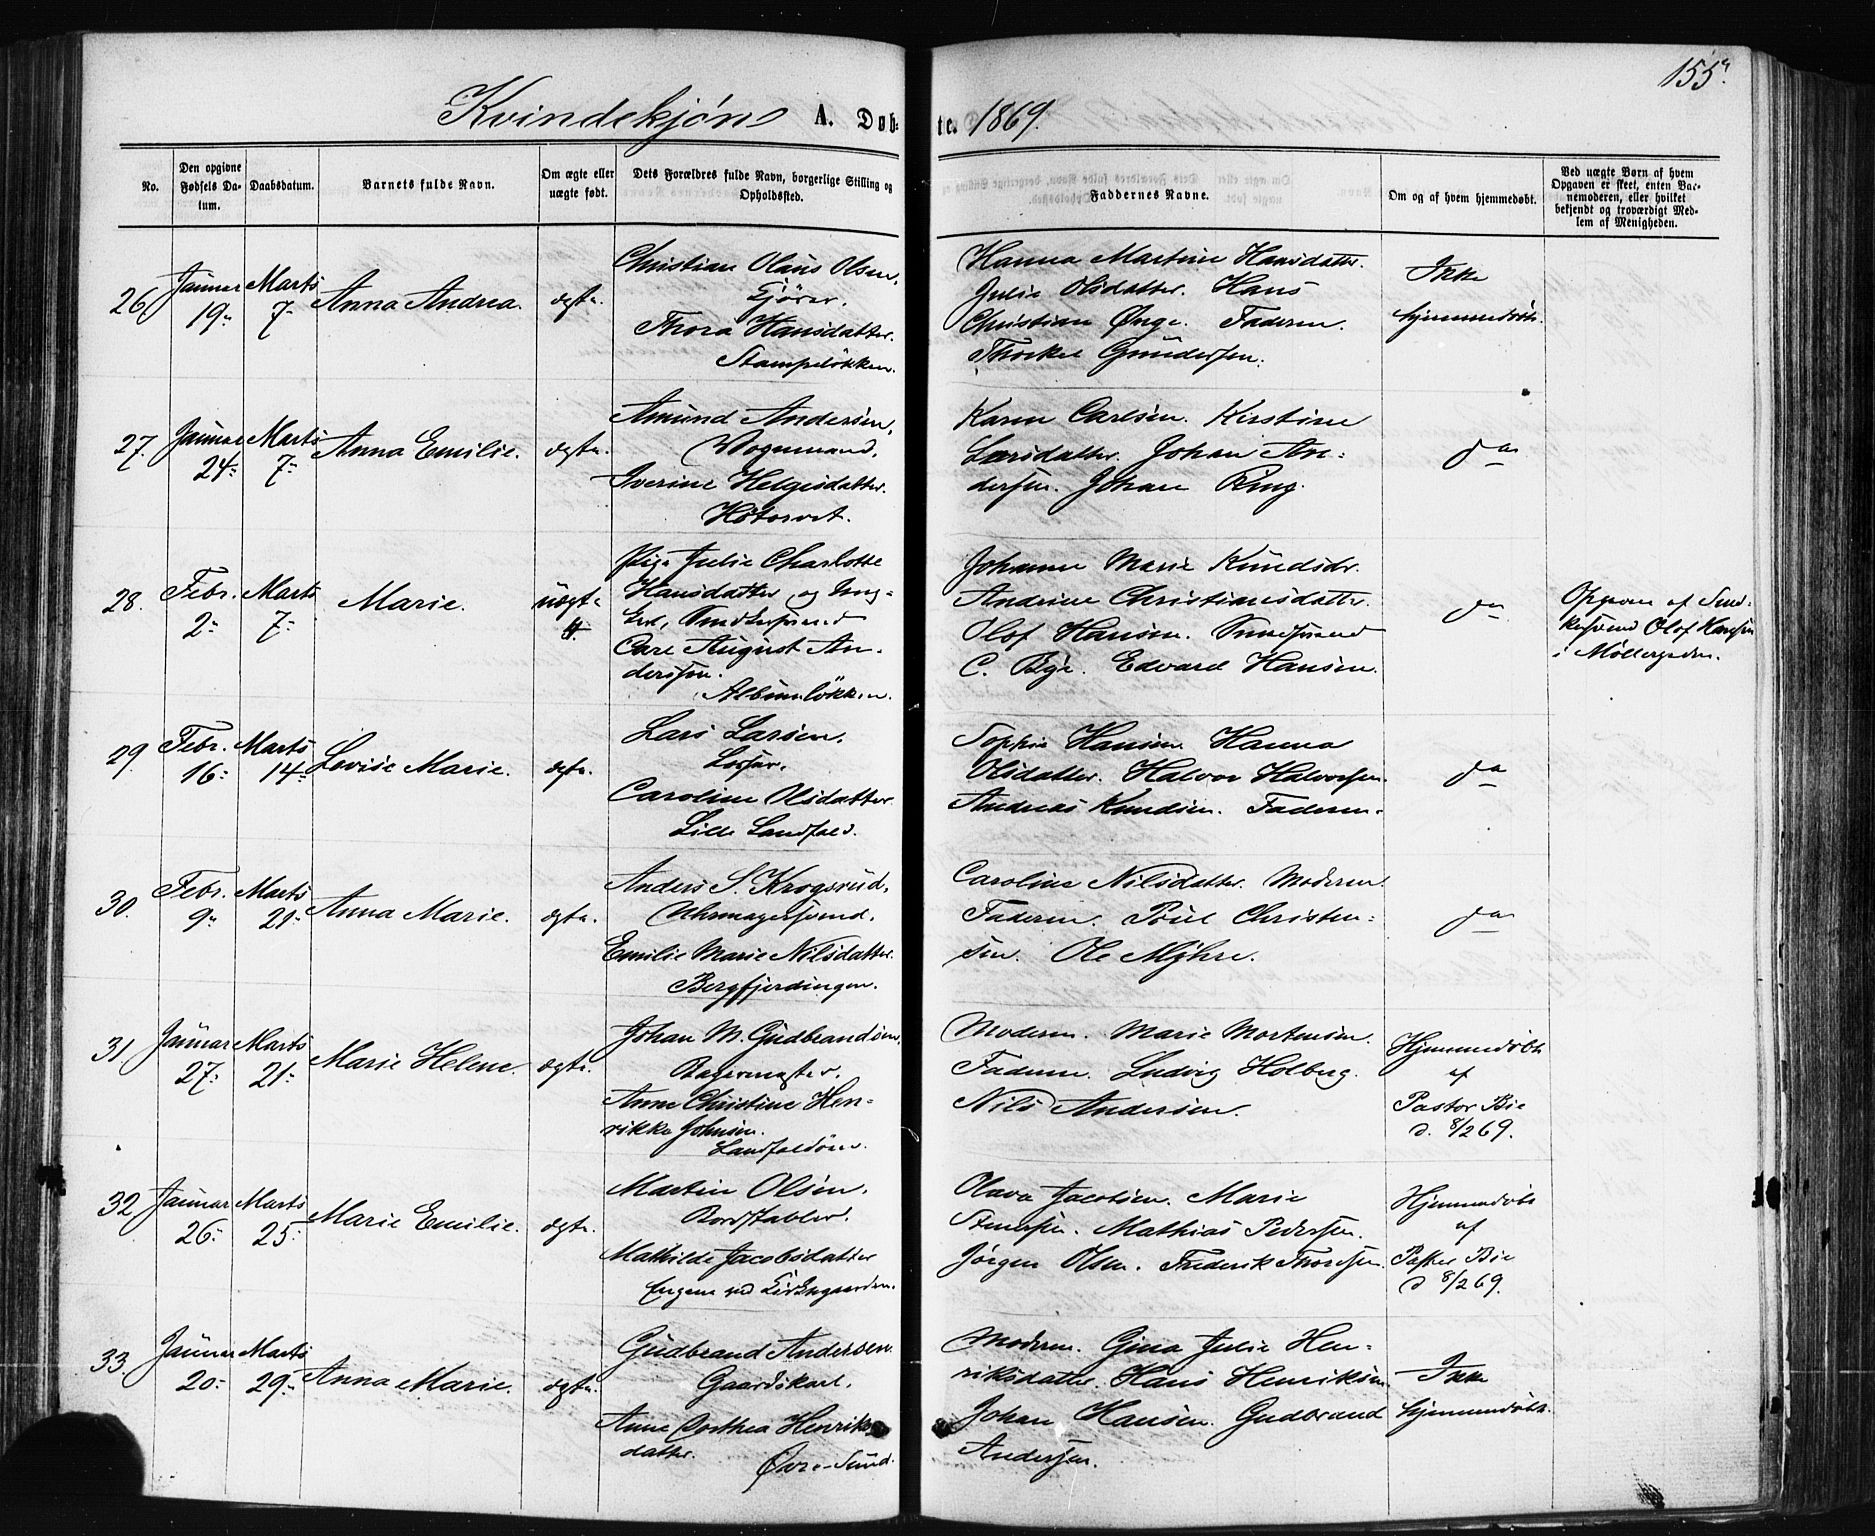 155a
Kvindekjøn A. Døb- te. 1869.
No.
Den opgivne Fødsels Da-tum.
Daabsdatum.
Barnets fulde Navn.
Om ægte eller uægte født.
Dets Forældres fulde Navn, borgerlige Stilling og Opholdssted.
Faddernes Navne.
Om og af hvem hjemmedøbt.
Ved uægte Børn af hvem
Opgaven er skeet, enten Bar-
nemoderen, eller hvilket
bekjendt og troværdigt Med-
lem af Menigheden.
26. Januar 19. Marts 7. Anna Andrea. ægte.
Christian Olaus Olsen,
Kjører.
Thora Hansdatter.
Stampeløkken.
Hanna Martine Hansdatter.
Julie Olsdatter. Hans
Christian Ønge. Faderen.
Thorkel Gundersen.
Ikke
hjemmedøbt.
27. Januar 24. Marts 7. Anna Emilie. ægte.
Amund Andersen,
Vognmand.
Iverine Helgesdatter.
Høtorvet.
Karen Carlsen. Kirstine
Larsdatter. Johan An-
dersen. Johan Ring.
do
28. Febr. 2. Marts 7. Marie. uægte
Pige Julie Charlotte
Hansdatter og Ung-
karl, Snedkersvend
Carl August An-
derssen.
Albumsløkken.
Johanne Marie Knudsdr.
Andrine Christiansdatter.
Olof Hansen. Snedsvend
C. Bye. Edvard Hansen.
do
Opgaven af Sned-
kersvend Olof Hansen
i Møllergaden.
29. Febr. 16. Marts 14. Lovise Marie. ægte.
Lars Larsen.
Losser.
Caroline Olsdatter.
Lille Landfald.
Sophie Hansen. Hanna
Olsdatter. Halvor Halvorsen.
Andreas Knudsen. Faderen.
do
30. Febr. 9. Marts 21. Anna Marie. ægte.
Anders S. Krogsrud,
Uhrmagersvend.
Emilie Marie Nilsdatter.
Bergfjerdingen.
Caroline Nilsdatter. Moderen.
Faderen. Poul Christen-
sen. Ole Myhre.
do
31. Januar 27. Marts 21. Marie Helene. ægte.
Johan M. Gudbrandsen,
Bagermester.
Anne Christine Hen-
rikke Johnsen.
Landfaldøen.
Moderen. Marie Mortensen.
Faderen. Ludvig Holberg.
Nils Andersen.
Hjemmedøbt
af
Pastor Bie
d. 8/2 69.
32. Januar 26. Marts 25. Marie Emilie. ægte.
Martin Olsen.
Bordstabler.
Mathilde Jacobsdatter
Engene ved Kirkegaarden.
Olava Jacobsen. Marie
Stensen. Mathias Pedersen.
Jørgen Olsen. Frederik Thoresen.
Hjemmedøbt
af
Pastor Bie
d 8/2 69.
33. Januar 20. Marts 29. Anna Marie. ægte.
Gudbrand Andersen
Gaardskarl.
Anne Dorthea Henriks-
datter.
Øvre-Sund.
Moderen. Gina Julie Hen-
riksdatter. Hans Henriksen
Johan Hansen. Gudbrand
Andersen.
Ikke
hjemmedøbt.